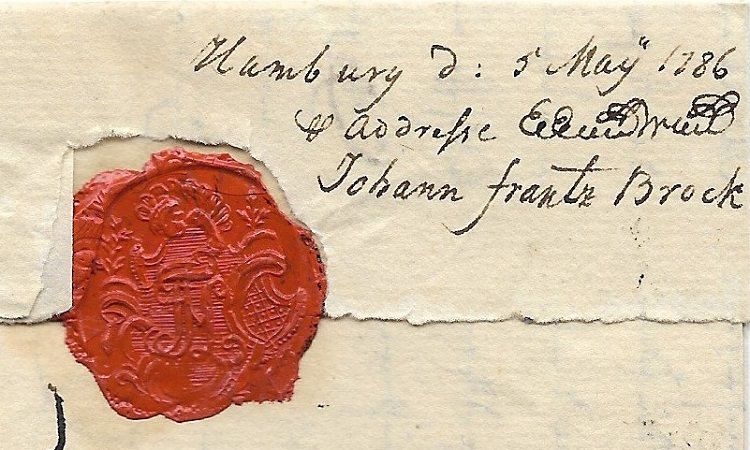 Hamburg d: 5 Maÿ 1786
addresse
Johann frantz Brock